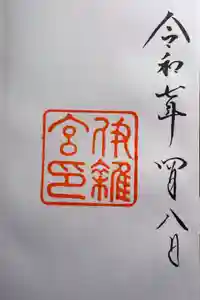 令和七年 四月八日
伊雜
宮印